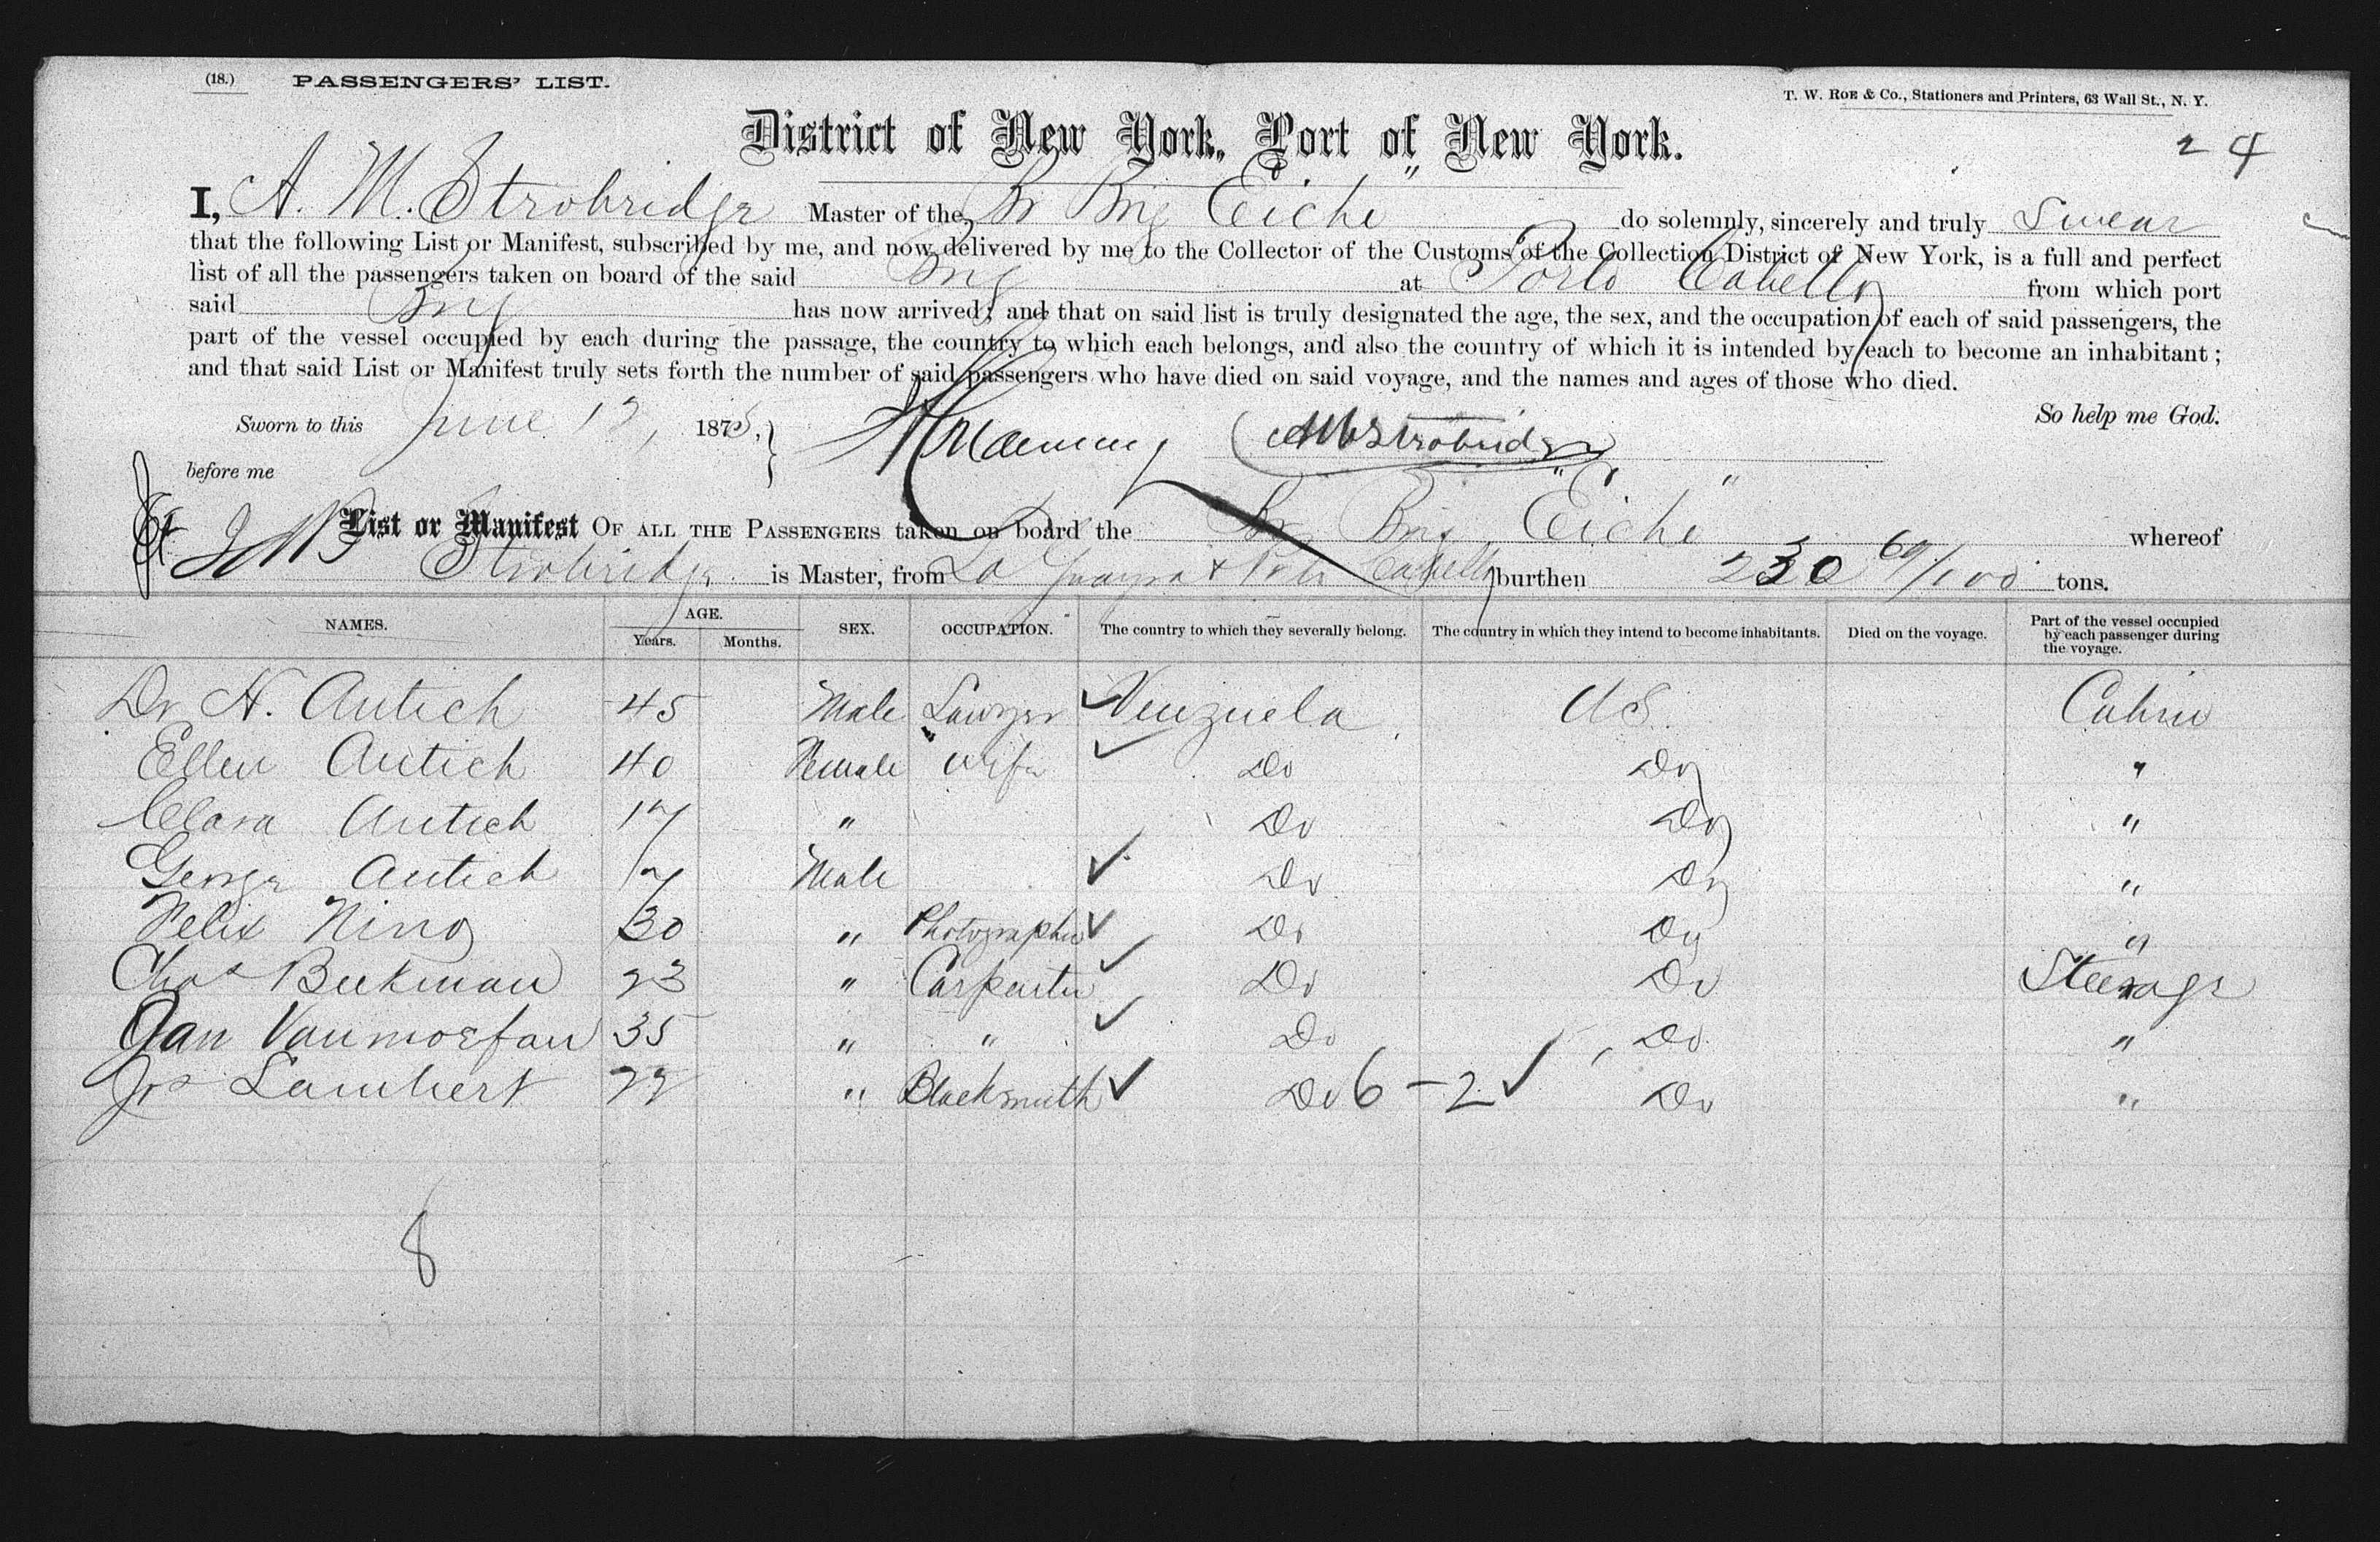 (18.) PASSENGERS' LIST.
T. W. ROE & Co., Stationers and Printers, 63 Wall St., N. Y.
District of New York, Port of New York.
24
I, A. M. Strobridge Master of the Br Brig "Eiche" do solemnly, sincerely and truly Swear
that the following List or Manifest, subscribed by me, and now delivered by me to the Collector of the Customs of the Collection District of New York, is a full and perfect
list of all the passengers taken on board of the said Brig at Porto Cabello from which port
said Brig has now arrived; and that on said list is truly designated the age, the sex, and the occupation of each of said passengers, the
part of the vessel occupied by each during the passage, the country to which each belongs, and also the country of which it is intended by each to become an inhabitant;
and that said List or Manifest truly sets forth the number of said passengers who have died on said voyage, and the names and ages of those who died.
So help me God.
Sworn to this June 12, 1875,
AM Strobridge
before me
List or Manifest OF ALL THE PASSENGERS taken on board the Br Brig "Eiche" whereof
Strobridge is Master, from La Guayra & Porto Cabello burthen 230 69/100 tons.
NAMES. AGE. Years. Months. SEX. OCCUPATION. The country to which they severally belong. The country in which they intend to become inhabitants. Died on the voyage. Part of the vessel occupied by each passenger during the voyage.
Dr N. Antich 45 Male Lawyer Venzuela US. Cabin
Ellen Antich 40 Female Wife Do Do "
Clara Antich 17 " Do Do "
George Antich 17 Male Do Do "
Felix Nino 30 " Photographer Do Do "
Chas Beekman 23 " Carpenter Do Do Steerage
Jan 35 " " Do Do "
Jos Lambert " Blacksmith Do 6-2 Do "
8